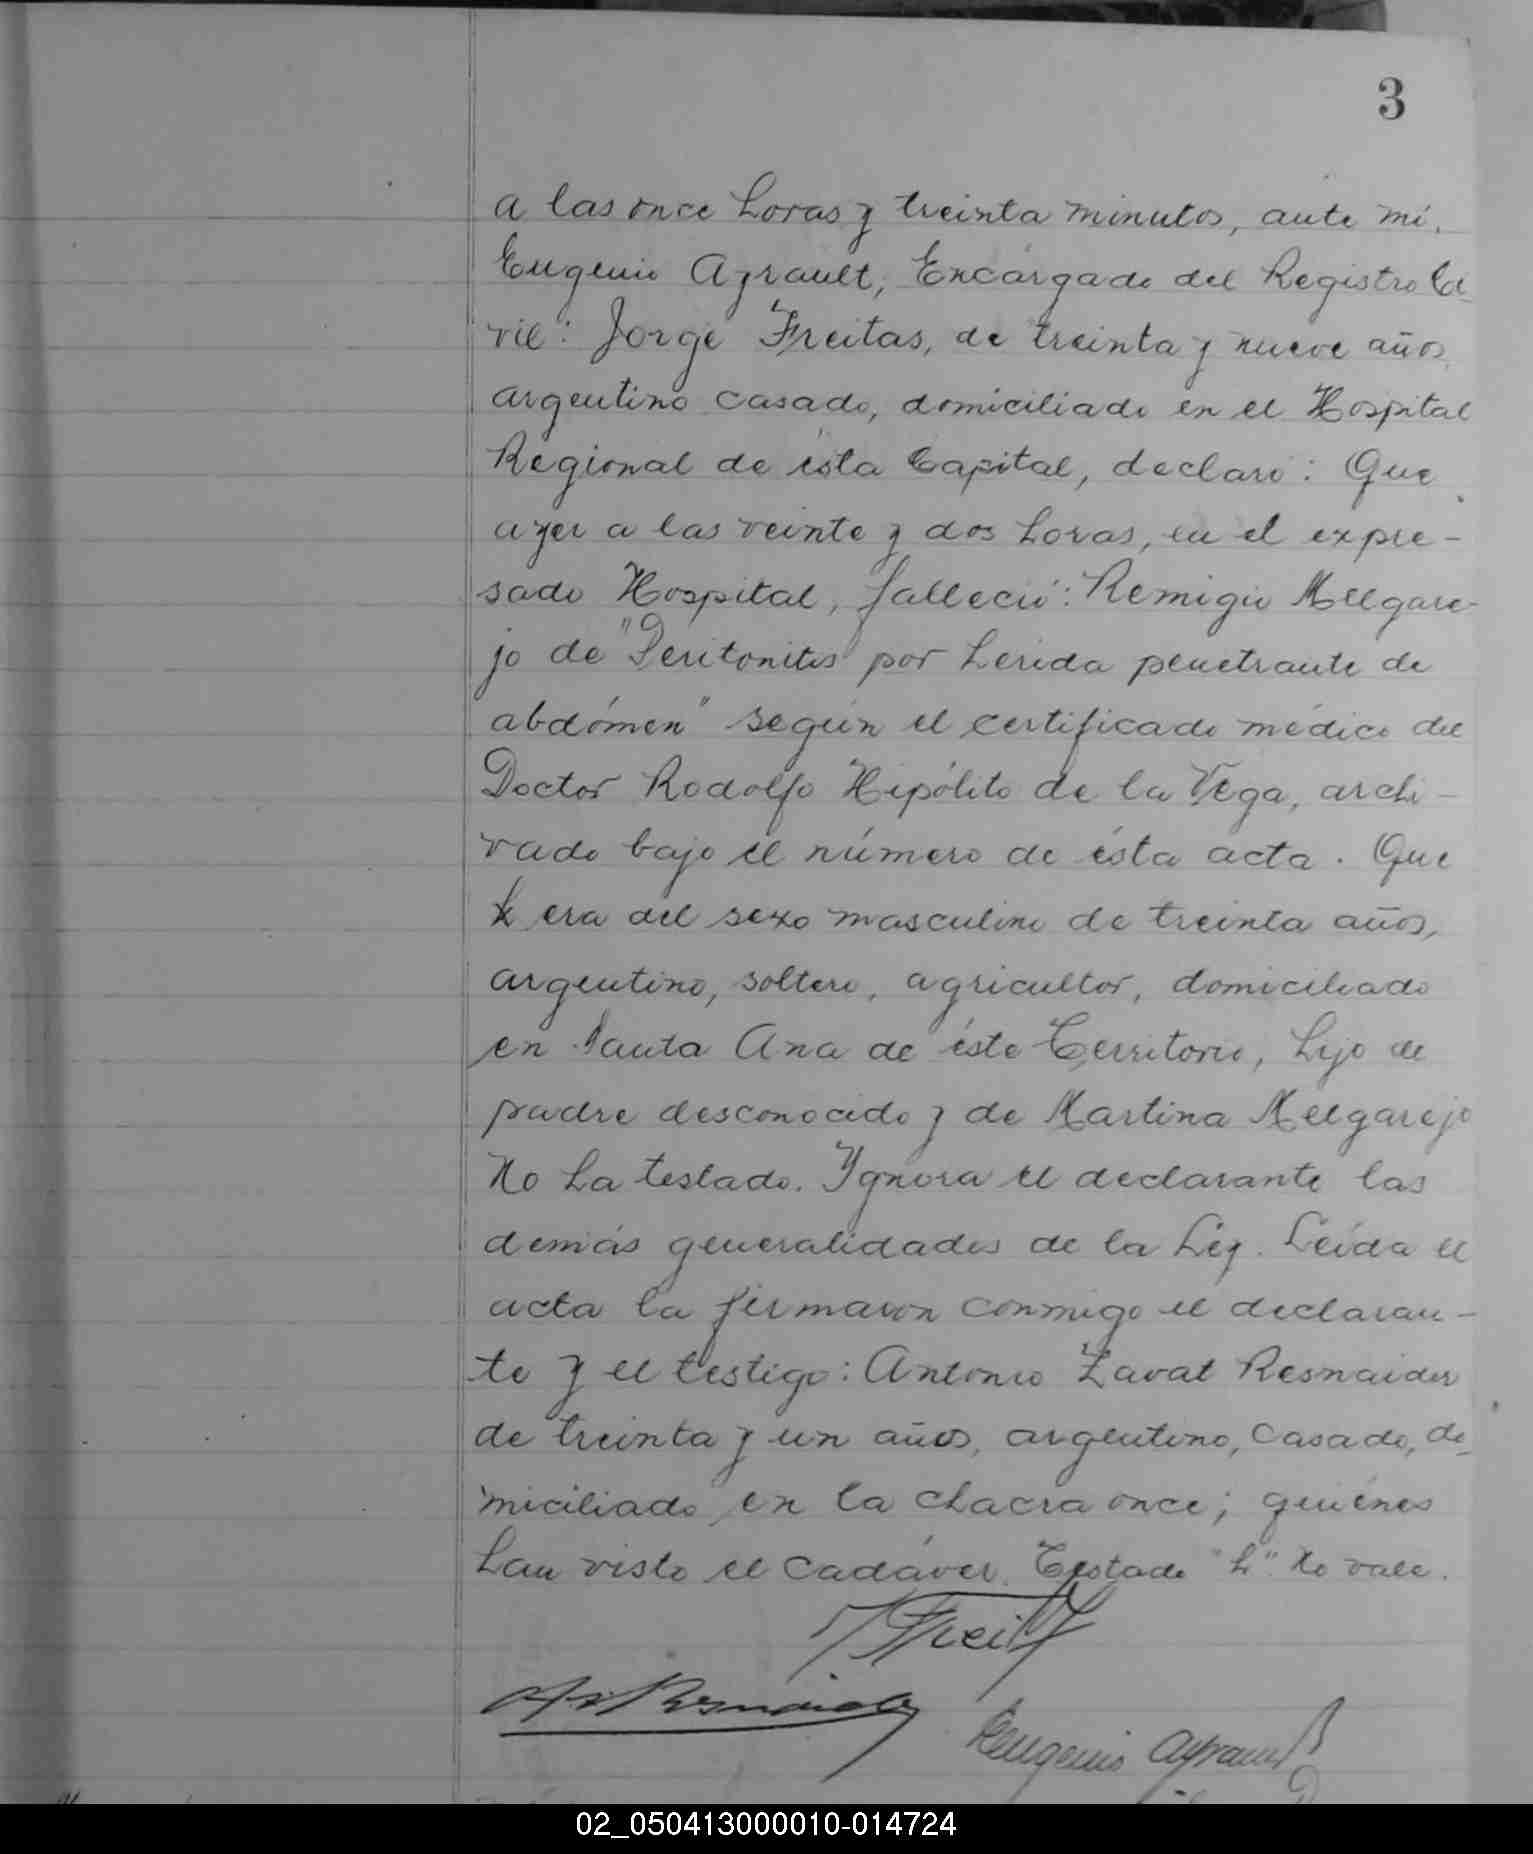 3
a las once horas y treinta minutos, ante mí,
Eugenio Ayrault, Encargado del Registro Ci
vil: Jorge Freitas, de treinta y nueve años,
argentino casado, domiciliado en el Hospital
Regional de ésta Capital, declaró: Que
ayer a las veinte y dos horas, en el expre-
sado Hospital, falleció: Remigio Melgare-
jo de "Peritonitis por herida penetrante de
abdómen" según el certificado médico del
Doctor Rodolfo Hipólito de la Vega, archi-
vado bajo el número de ésta acta. Que
h era del sexo masculino de treinta años,
argentino, soltero, agricultor, domiciliado
en Santa Ana de éste Territorio, hijo de
padre desconocido y de Martina Melgarejo
No ha testado. Ygnora el declarante las
demás generalidades de la Ley. Leída el
acta la firmaron conmigo el declaran-
te y el testigo: Antonio Zavat Resnaider
de treinta y un años, argentino, casado, do
miciliado en la chacra once; quiénes
han visto el cadáver. Testado "h". No vale.
J Freitas
A Z Resnaider
Eugenio Ayrault
02_050413000010-014724